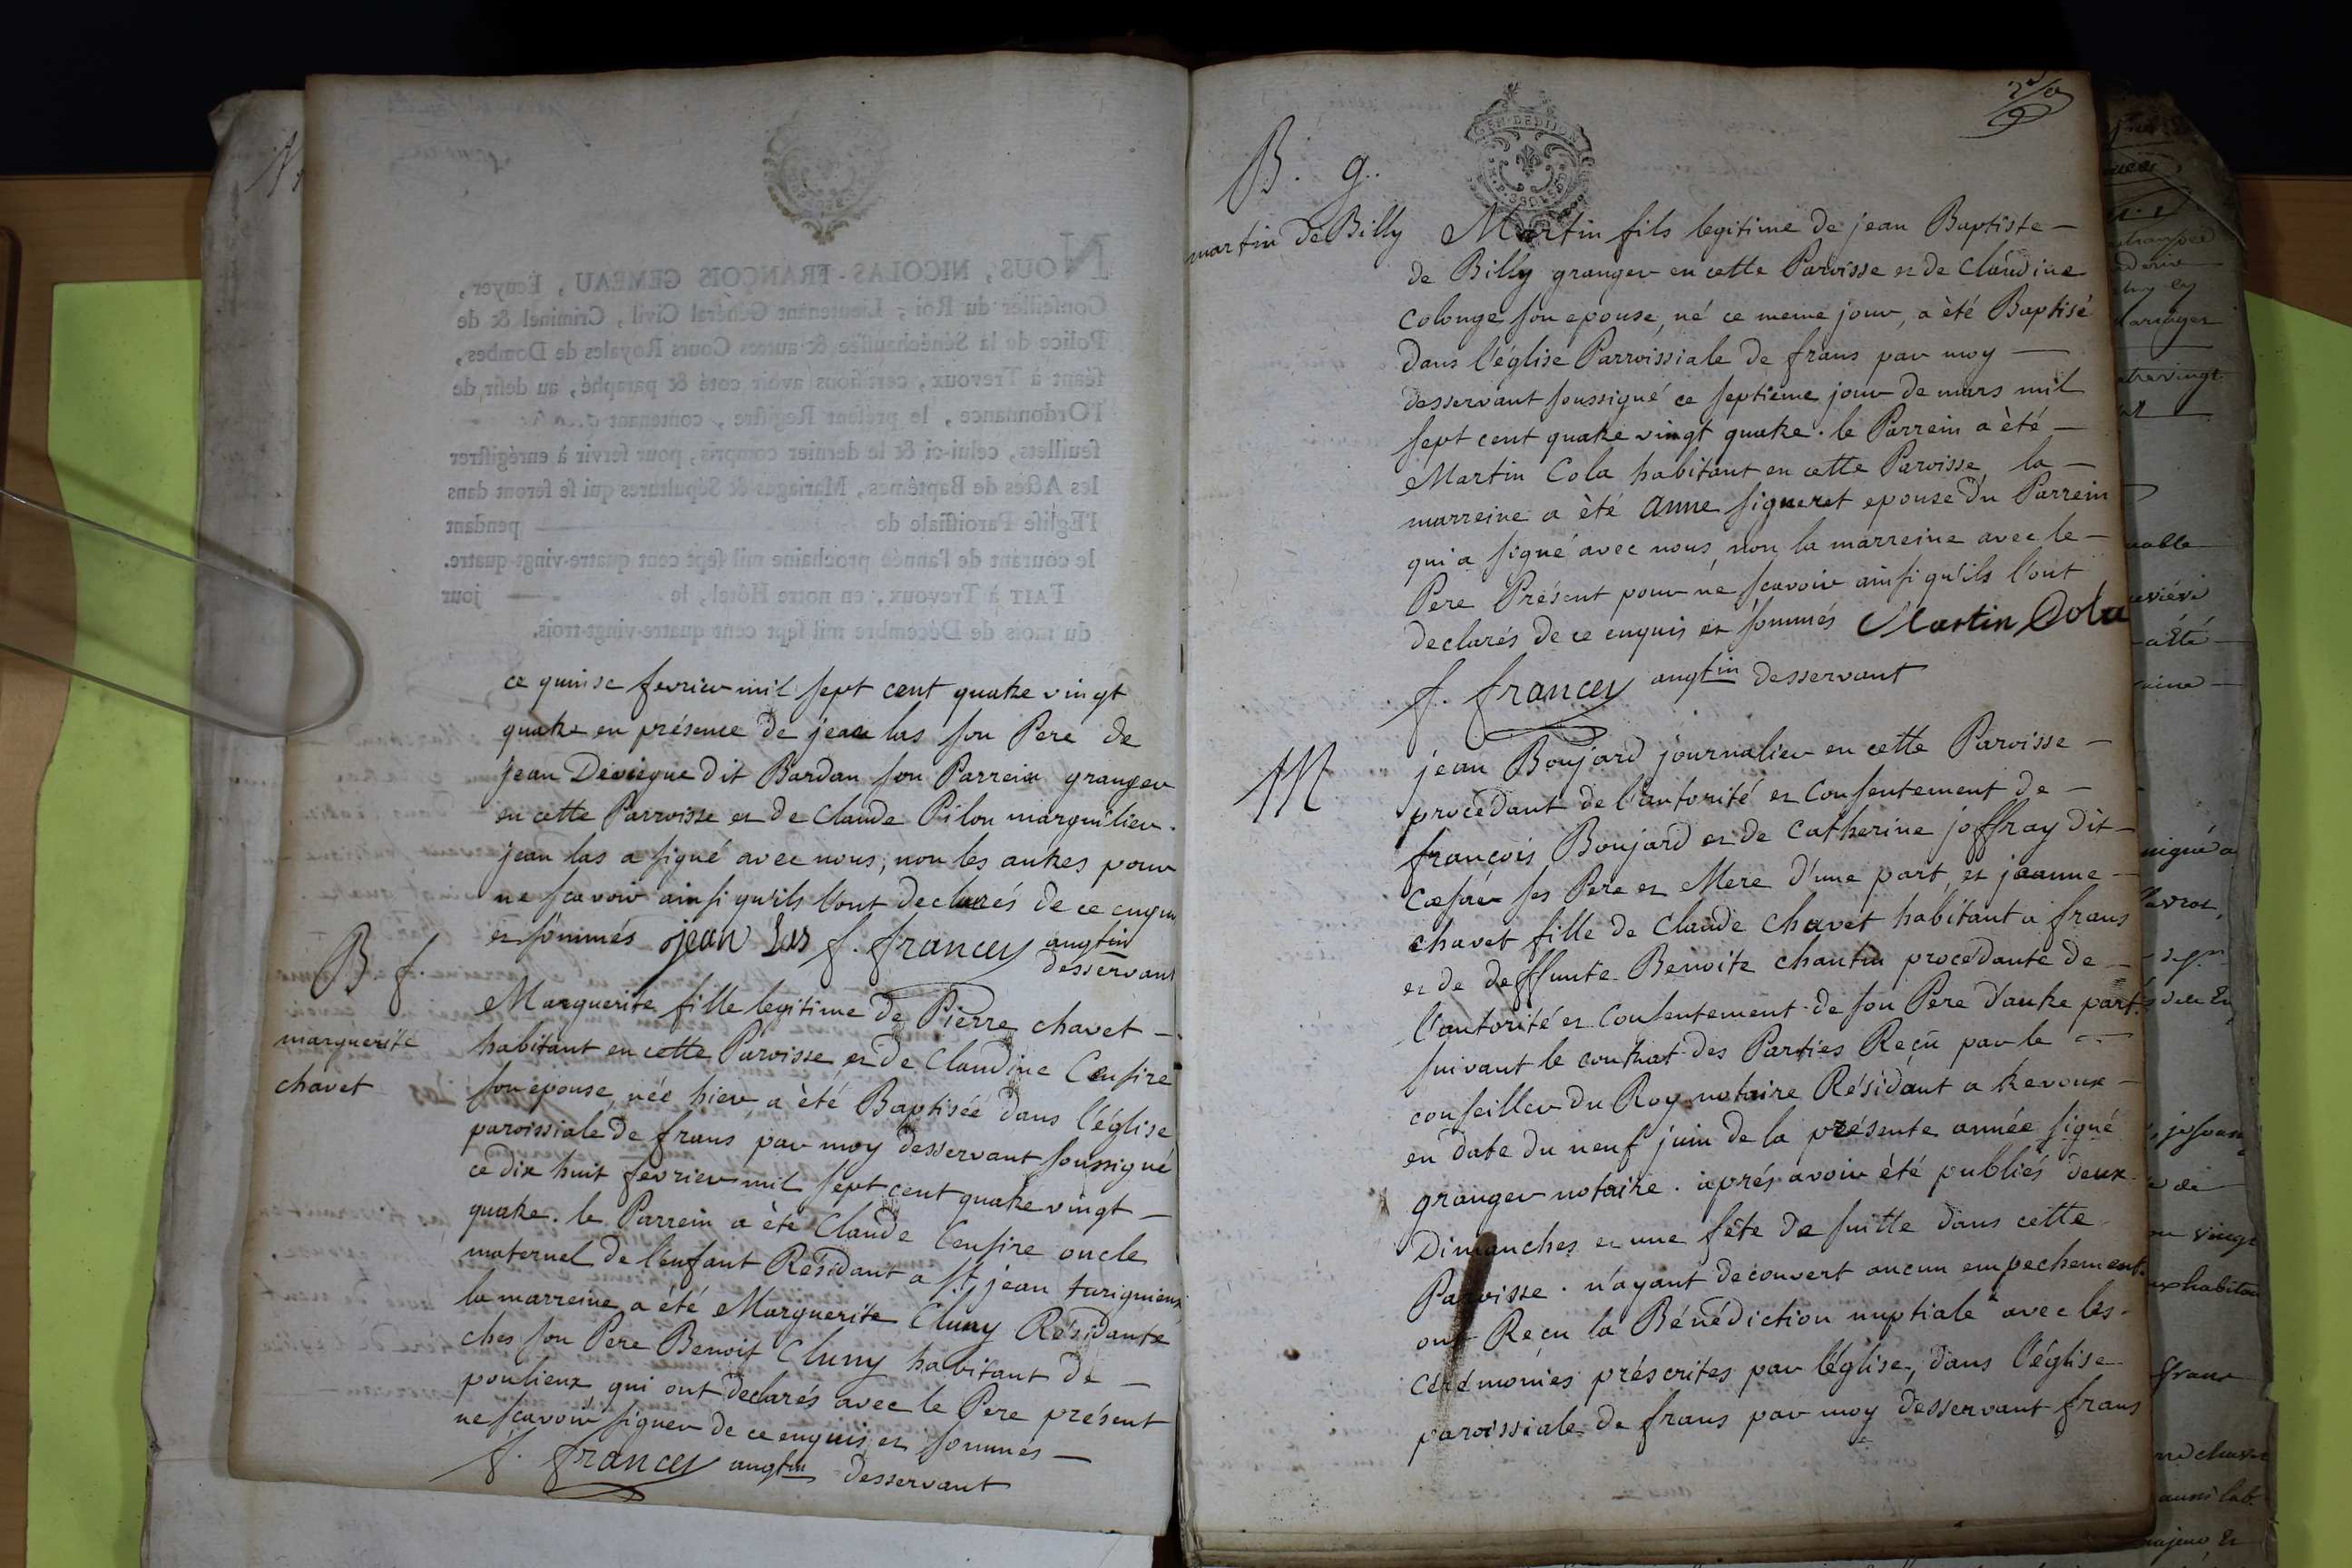 NOUS, NICOLAS-FRANÇOIS GEMEAU, Ecuyer,
Conseiller du Roi, Lieutenant Général Civil, Criminel & de
Police de la Sénéchaussée & autres Cours Royales de Dombes,
séant à Trevoux, certifions avoir coté & paraphé, au desir de
l'Ordonnance, le présent Registre, contenant
feuillets, celui-ci & le dernier compris, pour servir à enrégistrer
les Actes de Baptêmes, Mariages & Sépultures qui se feront dans
l'Eglise Paroissiale de pendant
le courant de l'année prochaine mil sept cent quatre-vingt-quatre.
FAIT à Trevoux, en notre Hôtel, le jour
du mois de Décembre mil sept cent quatre-vingt-trois.
ce quinse fevrier mil sept cent quatre vingt
quatre en présence de jean las son Pere de
jean Deviegue dit Bardan son Parrein granger
en cette Parroisse et de Claude Pilon marguilier.
jean las a signé avec nous, non les autres pour
ne scavoir ainsi qu'ils l'ont declarés de ce enquis
et sommés jean Las f. francey augtin
desservant
B. f.
marguerite
chavet
Marguerite fille legitime de Pierre chavet -
habitant en cette Paroisse et de Claudine Censire
son epouse, née hier, a été Baptisée dans l'église
paroissiale de frans par moy desservant soussigné
ce dix huit fevrier mil sept cent quatre vingt -
quatre. le Parrein a été Claude Censire oncle
maternel de l'enfant Résidant a st. jean turignieux
la marreine a été Marguerite Cluny Résidante
ches son Pere Benoit Cluny habitant de -
poulieux qui ont declarés avec le Pere présent
ne scavoir signer de ce enquis et sommés -
f. francey augtin desservant
GEN. DE DIJON
B. g.
martin de Billy
Martin fils legitime de jean Baptiste -
de Billy granger en cette Paroisse et de Claudine
Colonge son epouse, né ce meme jour, a été Baptisé
dans l'église Parroissiale de frans par moy -
desservant soussigné ce septieme jour de mars mil
sept cent quatre vingt quatre. le Parrein a été -
Martin Cola habitant en cette Paroisse, la -
marreine a été anne signeret epouse du Parrein
qui a signé avec nous, non la marreine avec le -
Pere Présent pour ne scavoir ainsi qu'ils l'ont
declarés de ce enquis et sommés Martin Cola
f. francey augtin desservant
M
jean Boujard journalier en cette Paroisse -
procédant de l'autorité et Consentement de -
françois Boujard et de Catherine joffray dit -
ses Pere et Mere d'une part, et jeanne -
chavet fille de Claude Chavet habitant a frans
et de deffunte Benoite chantin procédante de -
l'autorité et Consentement de son Pere d'autre part.
suivant le contrat des Parties Reçu par le -
conseiller du Roy notaire Résidant a trevoux -
en date du neuf juin de la présente année signé
granger notaire. aprés avoir été publiés deux
Dimanches et une fête de suitte dans cette
Paroisse. n'ayant decouvert aucun empechement.
ont Reçu la Bénédiction nuptiale avec les -
cérémonies préscrites par l'église, dans l'église
paroissiale de frans par moy desservant frans